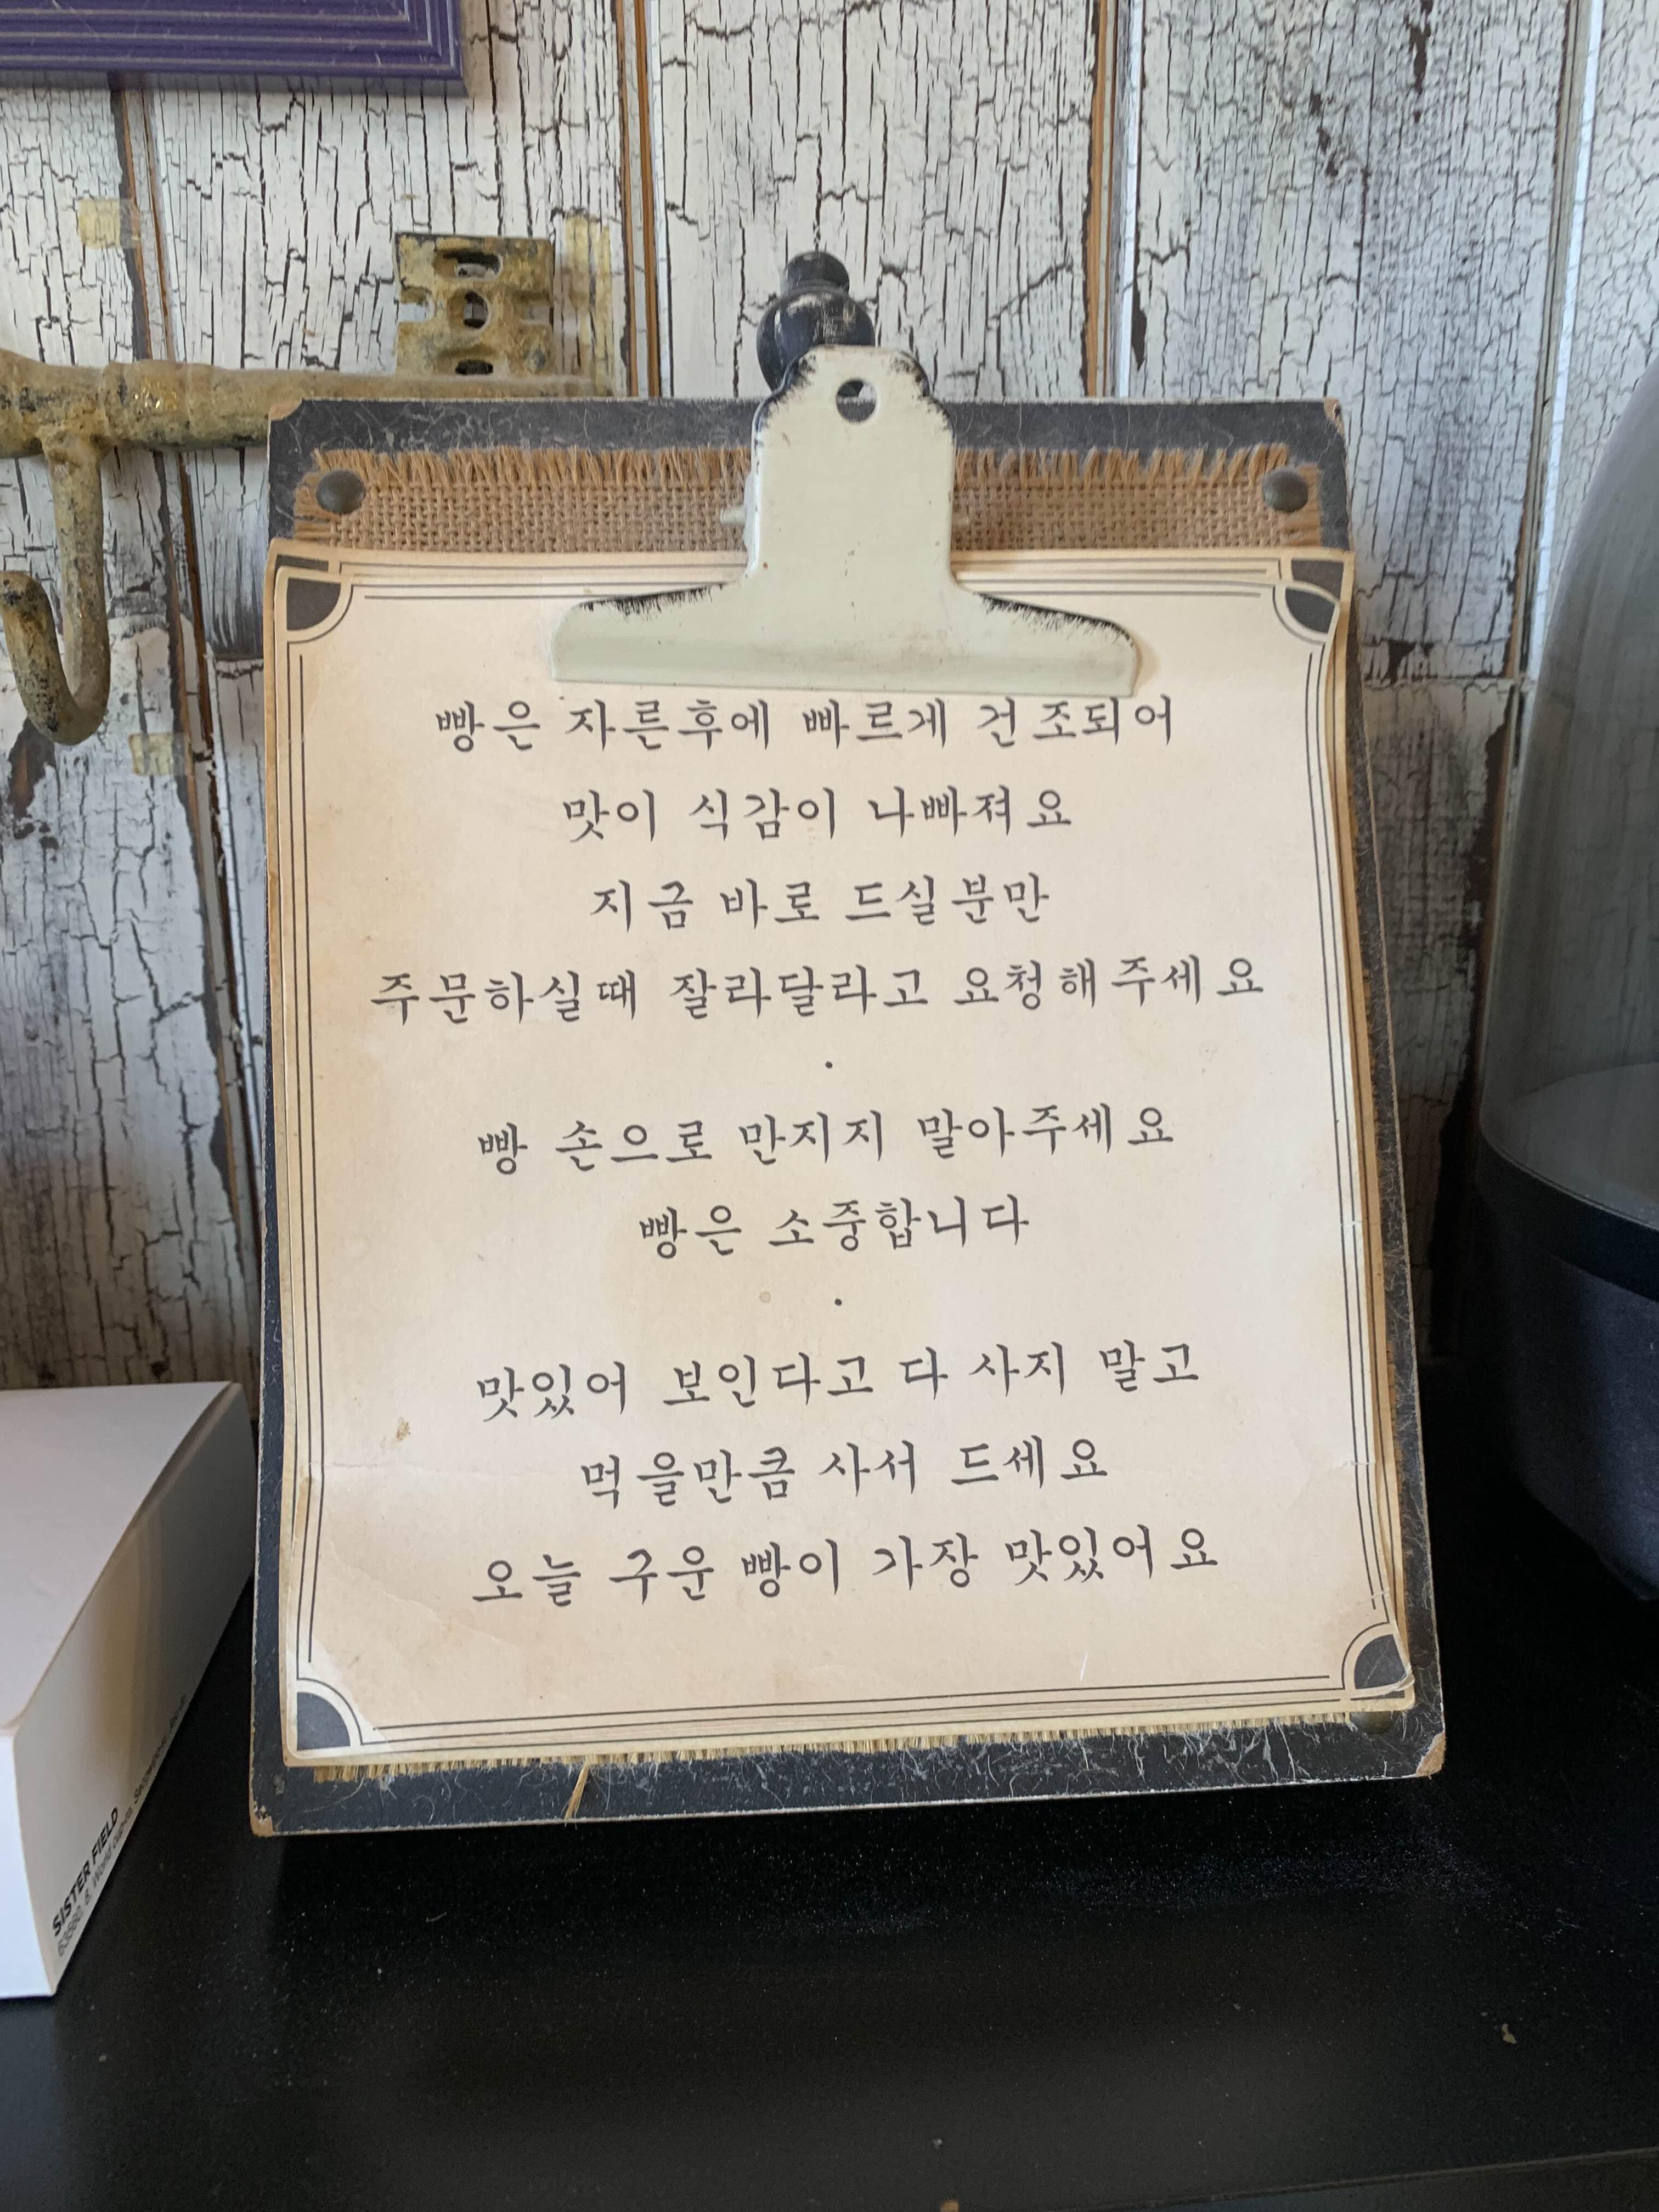 빵은 자른후에 빠르게 건조되어
맛이 식감이 나빠져요
지금 바로 드실분만
주문하실때 잘라달라고 요청해주세요
.
빵 손으로 만지지 말아주세요
빵은 소중합니다
.
맛있어 보인다고 다 사지 말고
먹을만큼 사서 드세요
오늘 구운 빵이 가장 맛있어요
SISTER FIELD